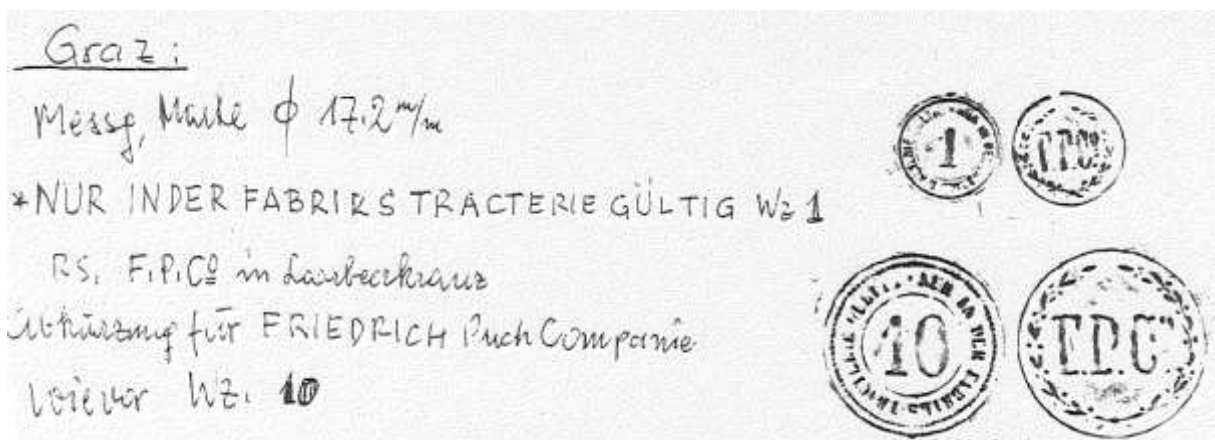 Graz:
Messg, Marke ϕ 17.2 m/m
*NUR IN DER FABRIKS TRACTERIE GÜLTIG Wz 1
RS. F.P.Cº in Lorbeerkranz
Abkürzung für FRIEDRICH Puch Companie
wie vor Wz. 10
1
F.P.Cº
10
NUR IN DER FABRIKS
F.P.Cº